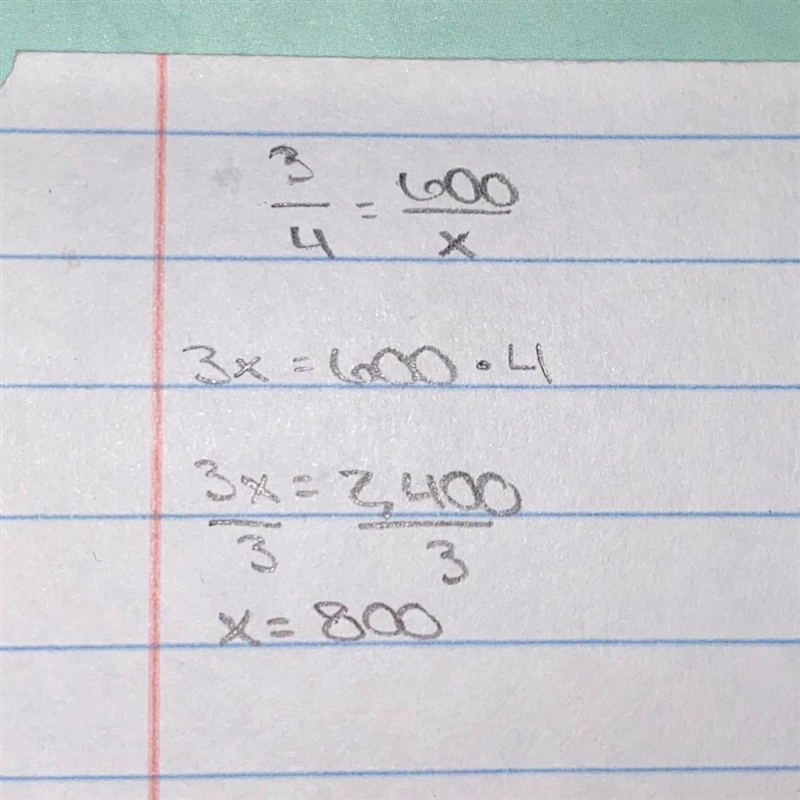 3/4 = 600/x
3x = 600 · 4
3x/3 = 2,400/3
x = 800